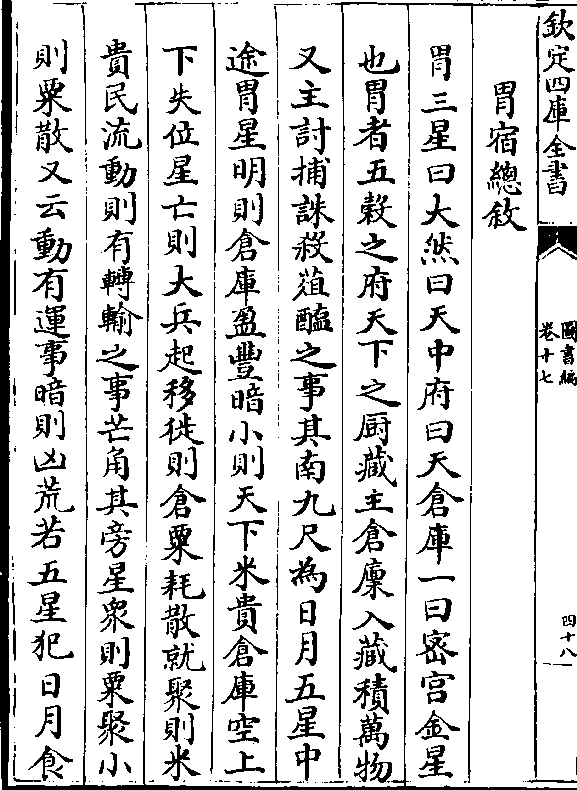 欽定四庫全書
圖書編
卷十七
四十八
胃宿總敘
胃三星曰大𤍠曰天中府曰天倉庫一曰宻宫金星
也胃者五榖之府天下之厨藏主倉廩入藏積萬物
又主討捕誅殺葅醢之事其南九尺為日月五星中
途胃星明則倉庫盈豐暗小則天下米貴倉庫空上
下失位星亡則大兵起移徙則倉粟耗散就聚則米
貴民流動則有轉輸之事芒角其旁星衆則粟聚小
則粟散又云動有運事暗則凶荒若五星犯日月食